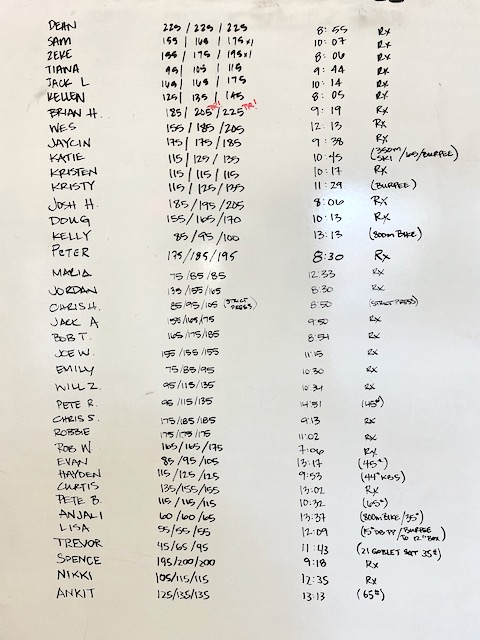 DEAN 225 / 225 / 225 8:55 Rx
SAM 155 / 165 / 175x1 10:07 Rx
ZEKE 155 / 175 / 195x1 8:06 Rx
TIANA 95 / 105 / 115 9:44 Rx
JACK L 165 / 165 / 175 10:14 Rx
KELLEN 125 / 135 / 145 8:05 Rx
BRIAN H. 185 / 205 PR! / 225 PR! 9:19 Rx
WES 155 / 185 / 205 12:13 Rx
JAYCIN 175 / 175 / 185 9:38 Rx
KATIE 115 / 125 / 135 10:45 (350m SKI / 65 / BURPEE)
KRISTEN 115 / 115 / 115 10:17 Rx
KRISTY 115 / 125 / 135 11:29 (BURPEE)
JOSH H. 185 / 195 / 205 8:06 Rx
DOUG 155 / 165 / 170 10:13 Rx
KELLY 85 / 95 / 100 13:13 (800m BIKE)
PETER 175 / 185 / 195 8:30 Rx
MARIA 75 / 85 / 85 12:33 Rx
JORDAN 135 / 155 / 165 8:30 Rx
CHRIS H. 85 / 95 / 105 (STRICT PRESS) 8:50 (STRICT PRESS)
JACK A 155 / 165 / 175 9:50 Rx
BOB T. 165 / 175 / 185 8:54 Rx
JOE W. 155 / 155 / 155 11:15 Rx
EMILY 75 / 85 / 95 10:30 Rx
WILL Z. 95 / 115 / 135 10:34 Rx
PETE R. 95 / 115 / 135 14:51 (45#)
CHRIS S. 175 / 185 / 185 9:13 Rx
ROBBIE 175 / 175 / 175 11:02 Rx
ROB W 165 / 165 / 175 7:06 Rx
EVAN 85 / 95 / 105 13:17 (45#)
HAYDEN 115 / 125 / 125 9:53 (44# KBS)
CURTIS 135 / 155 / 155 13:02 Rx
PETE B. 115 / 115 / 115 10:32 (65#)
ANJALI 60 / 60 / 65 13:37 (800m BIKE / 35#)
LISA 55 / 55 / 55 12:09 (15# DB PP / BURPEE TO 12" BOX)
TREVOR 45 / 65 / 95 11:43 (21 GOBLET SQT 35#)
SPENCE 195 / 200 / 200 9:18 Rx
NIKKI 105 / 115 / 115 12:35 Rx
ANKIT 125 / 135 / 135 13:13 (65#)